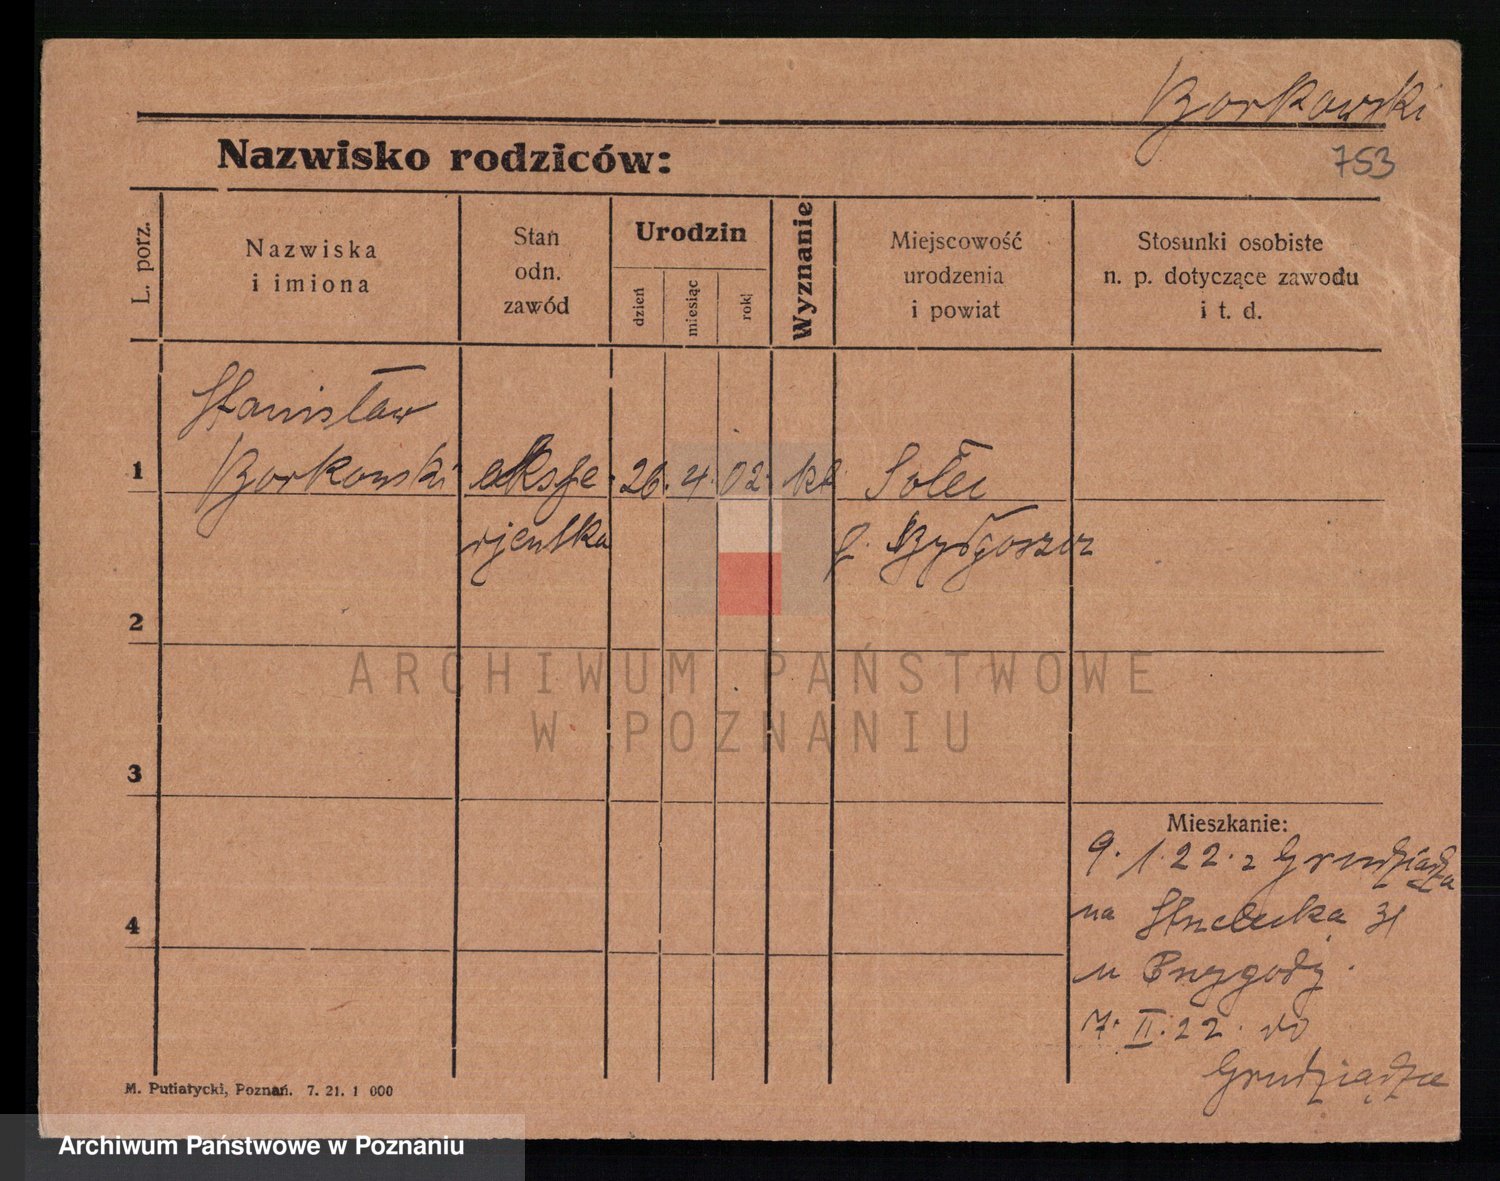 Borkowski
753
Nazwisko rodziców:
L. porz.
Nazwiska
i imiona
Stan
odn.
zawód
Urodzin
dzień
miesiąc
rok
Wyznanie
Miejscowość
urodzenia
i powiat
Stosunki osobiste
n. p. dotyczące zawodu
i t. d.
Stanisław
1 Borkowski ekspe 26. 4. 02. kt Solec
djentka p. Bydgoszcz
2
ARCHIWUM PAŃSTWOWE
W POZNANIU
3
Mieszkanie:
9. 1. 22. z Grudziądza
na 31
4
u Przygody.
7. II. 22. do
Grudziądza
M. Putiatycki, Poznań. 7. 21. 1 000
Archiwum Państwowe w Poznaniu